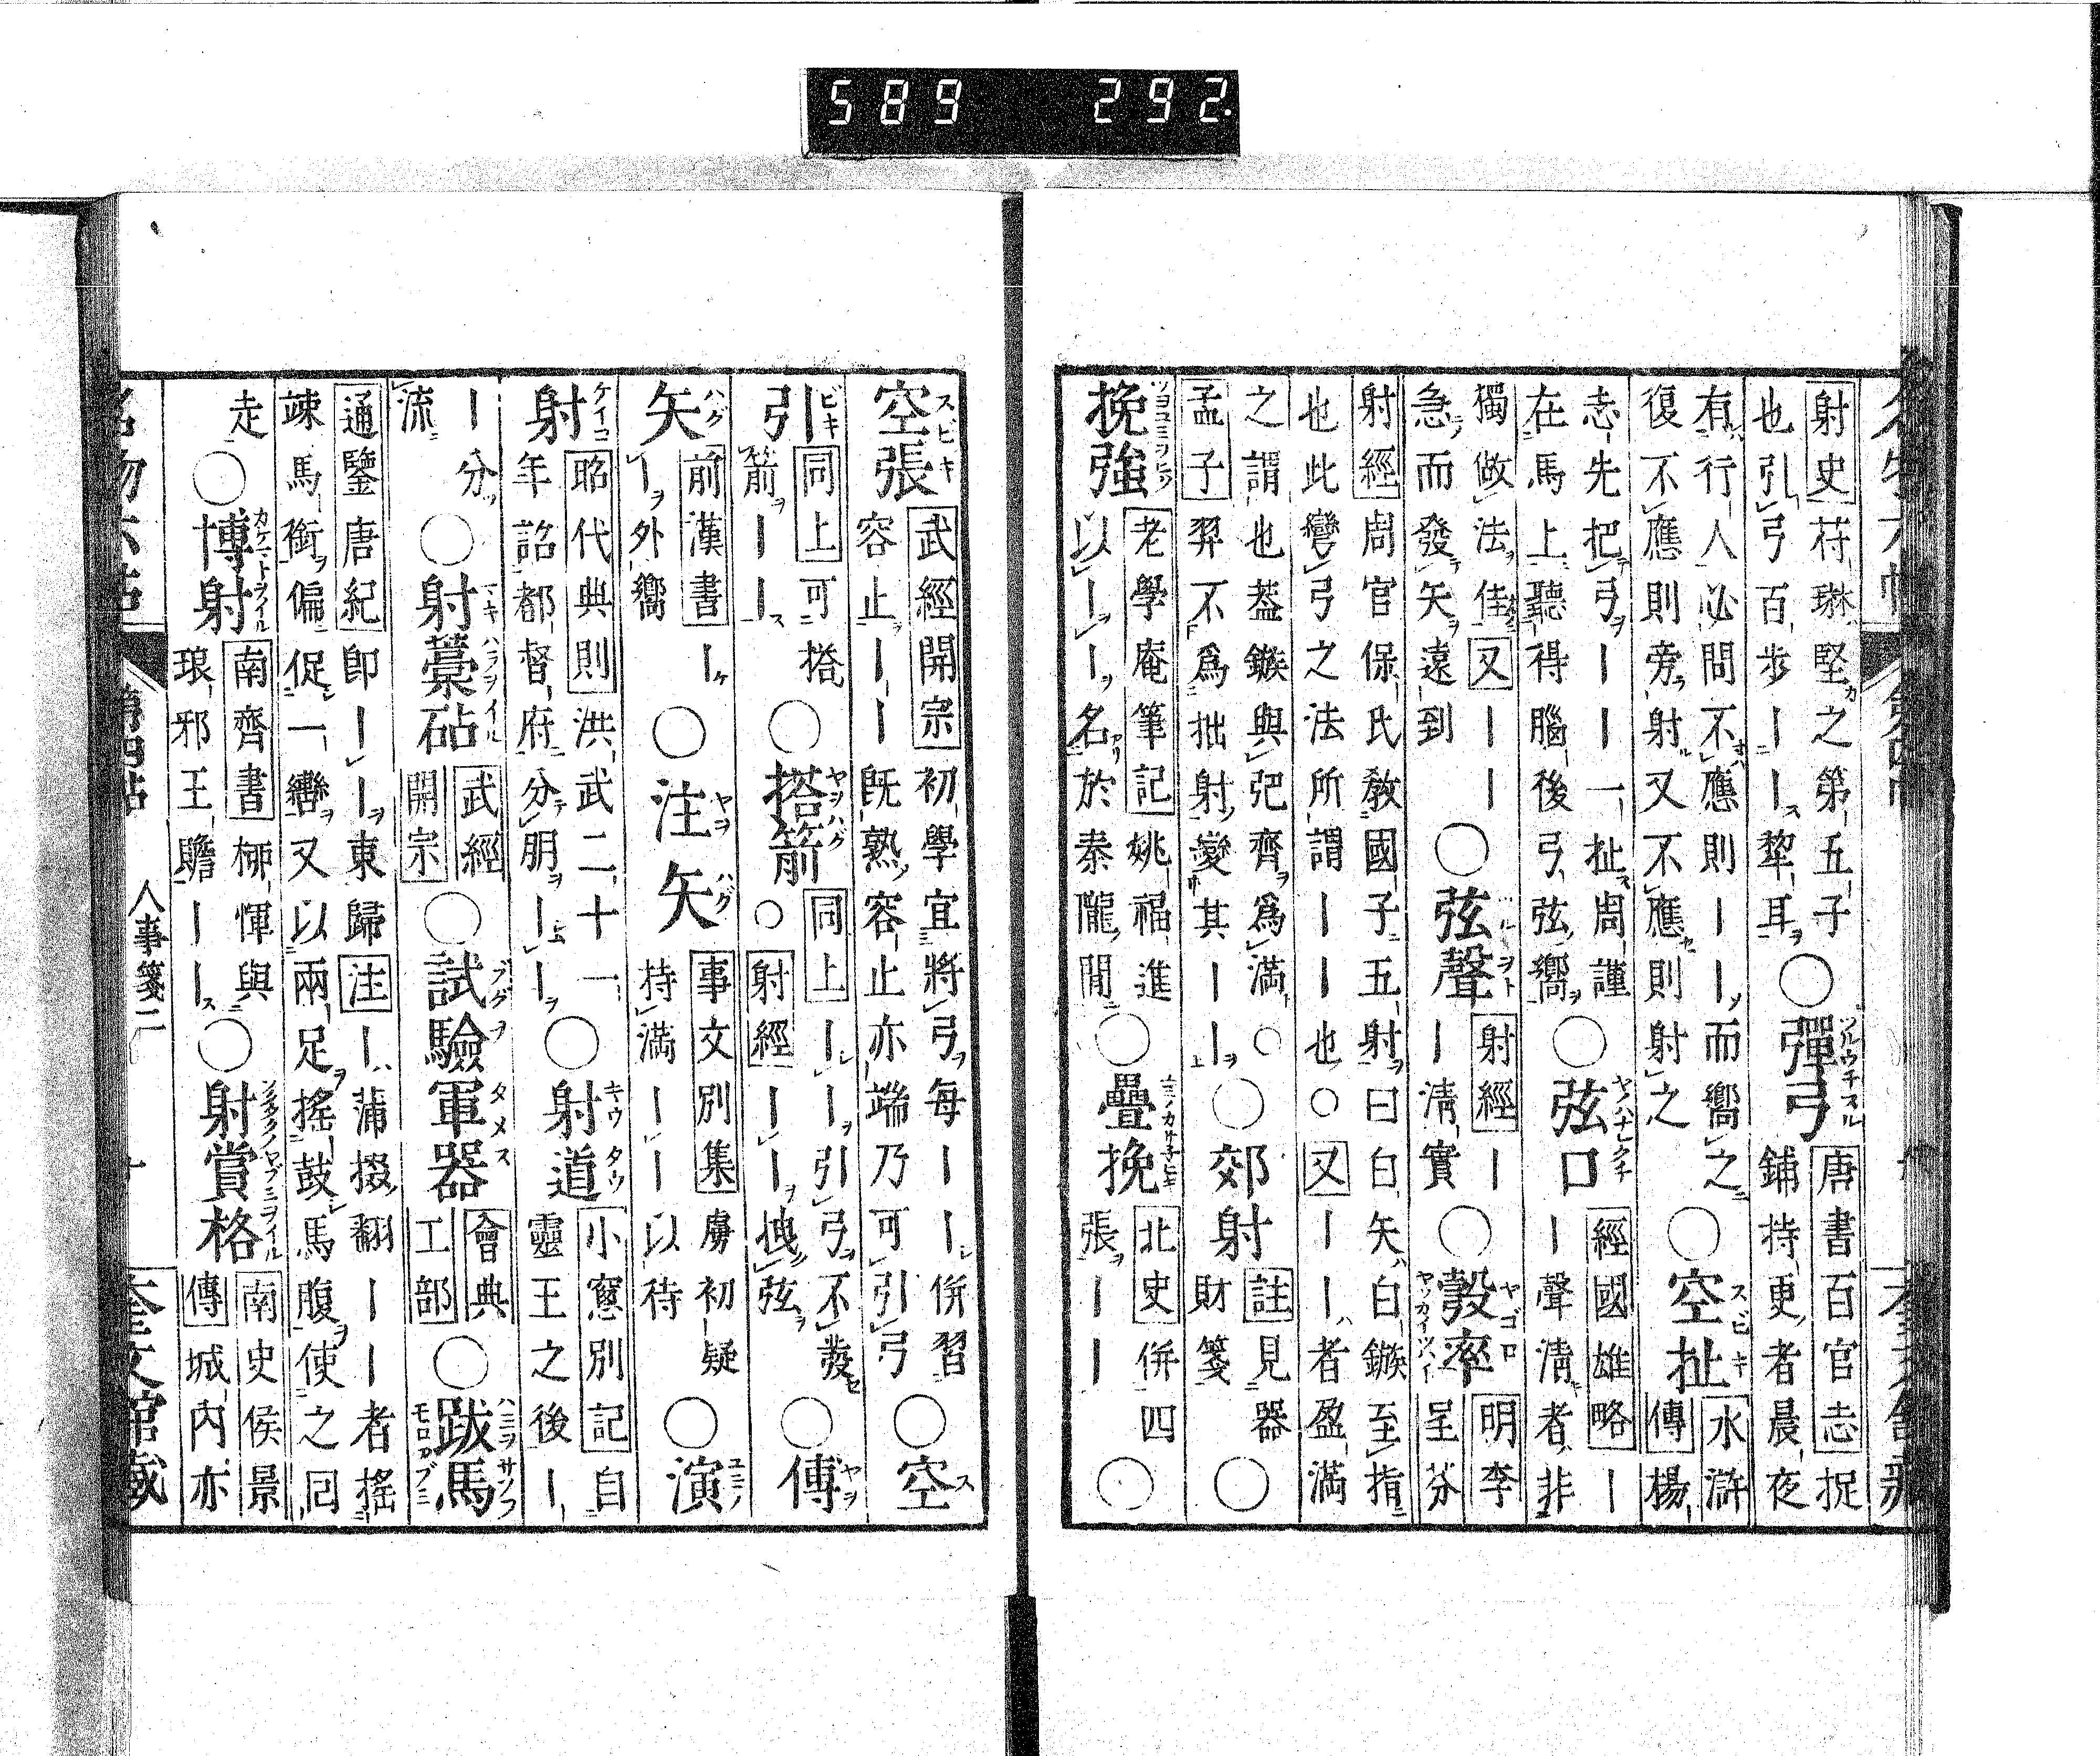 589 292.
射史 苻琳堅之第五子
也引弓百步ーー犂耳
○彈弓 ツルウチスル
唐書百官志 捉
鋪持更者晨夜
有行人必問不應則ーー而嚮之
復不應則旁射又不應則射之
○空扯 スビキ
水滸
傳 楊
志先把弓ーー一扯周謹
在馬上聽得腦後弓弦嚮
○弦口
經國雄略 ー
ー聲淸者非
獨做法佳 又 ーー
急而發矢遠到
○弦聲
射經 ー
ー淸實
○彀率 ヤゴロ
明李
呈芬
射經 周官保氏敎國子五射曰白矢白鏃至指
也此彎弓之法所謂ーー也○又ーー者盈滿
之謂也葢鏃與弝齊爲滿○
孟子 羿不爲拙射變其ーー
○郊射
註見器
財箋
○
挽強
老學庵筆記 姚福進
以ーーー名於秦隴閒
○疊挽
北史 併四
張ーー
○
空張 スビキ
武經開宗 初學宜將弓每ーー併習
容止ーー旣熟容止亦端乃可引弓
○空 ス
引 ビキ
同上 可搭
箭ーー
○搭箭 ヤヲハグ
同上 ーー引弓不發
○射經 ーー拽弦
○傅 ヤヲ
矢 ハグ
前漢書 ー
ー外嚮
○注矢 ヤヲハグ
事文別集 虜初疑
持滿ーー以待
○演 ユミノ
射 ケイコ
昭代典則 洪武二十一
年詔都督府分朋ーー
○射道 キウタウ
小窻別記 自
靈王之後ー
ー分
流
○射藁砧 マキハラヲイル
武經
開宗
○試驗軍器 ブグヲタメス
會典
工部
○跋馬
通鑒唐紀 卽ーー東歸 注 ー蒲撥翻ーー者搖
竦馬銜偏促一轡又以兩足搖鼓馬腹使之囘
走
○博射
南齊書 柳惲與
琅邪王瞻ーー
○射賞格
南史侯景
傳 城內亦
人事箋二
第四帖
奎文館藏